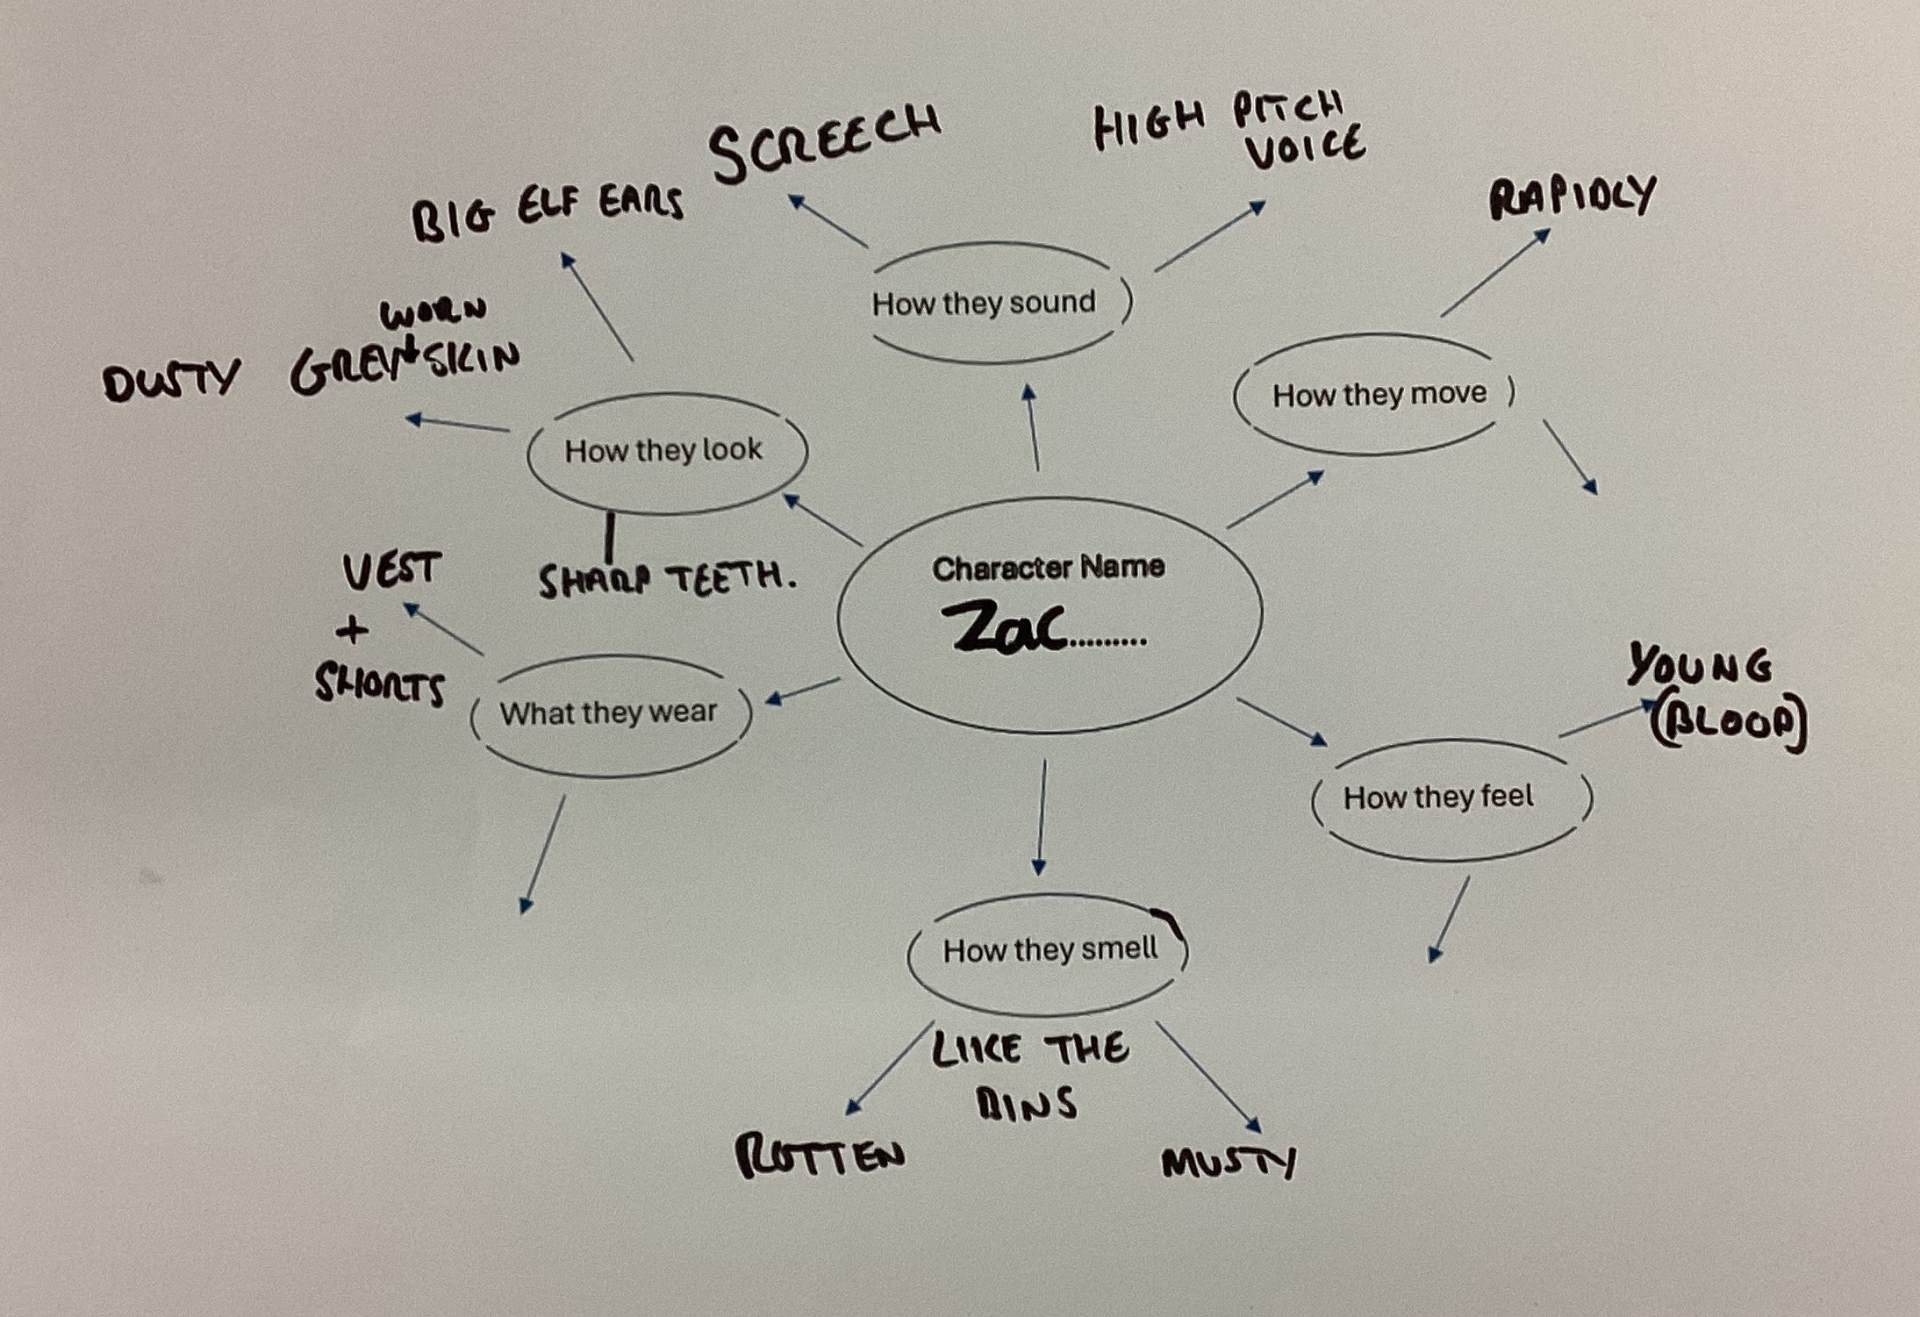 SCREECH
HIGH PITCH
VOICE
BIG ELF EARS
RAPIDLY
How they sound
WORN
DUSTY GREY + SKIN
How they move
How they look
VEST
+
SHORTS
SHARP TEETH.
Character Name
Zac.........
What they wear
YOUNG
(BLOOD)
How they feel
How they smell
LIKE THE
BINS
ROTTEN
MUSTY